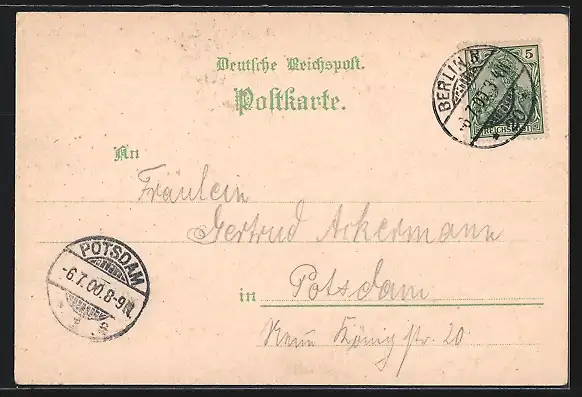 Deutsche Reichspost.
Postkarte.
5
REICHSPOST
BERLIN N.
6.7.00.3-4N.
An
Fräulein
Gertrud Ackermann
in Potsdam
Neue Königstr. 20
POTSDAM
-6.7.00.8-9N.